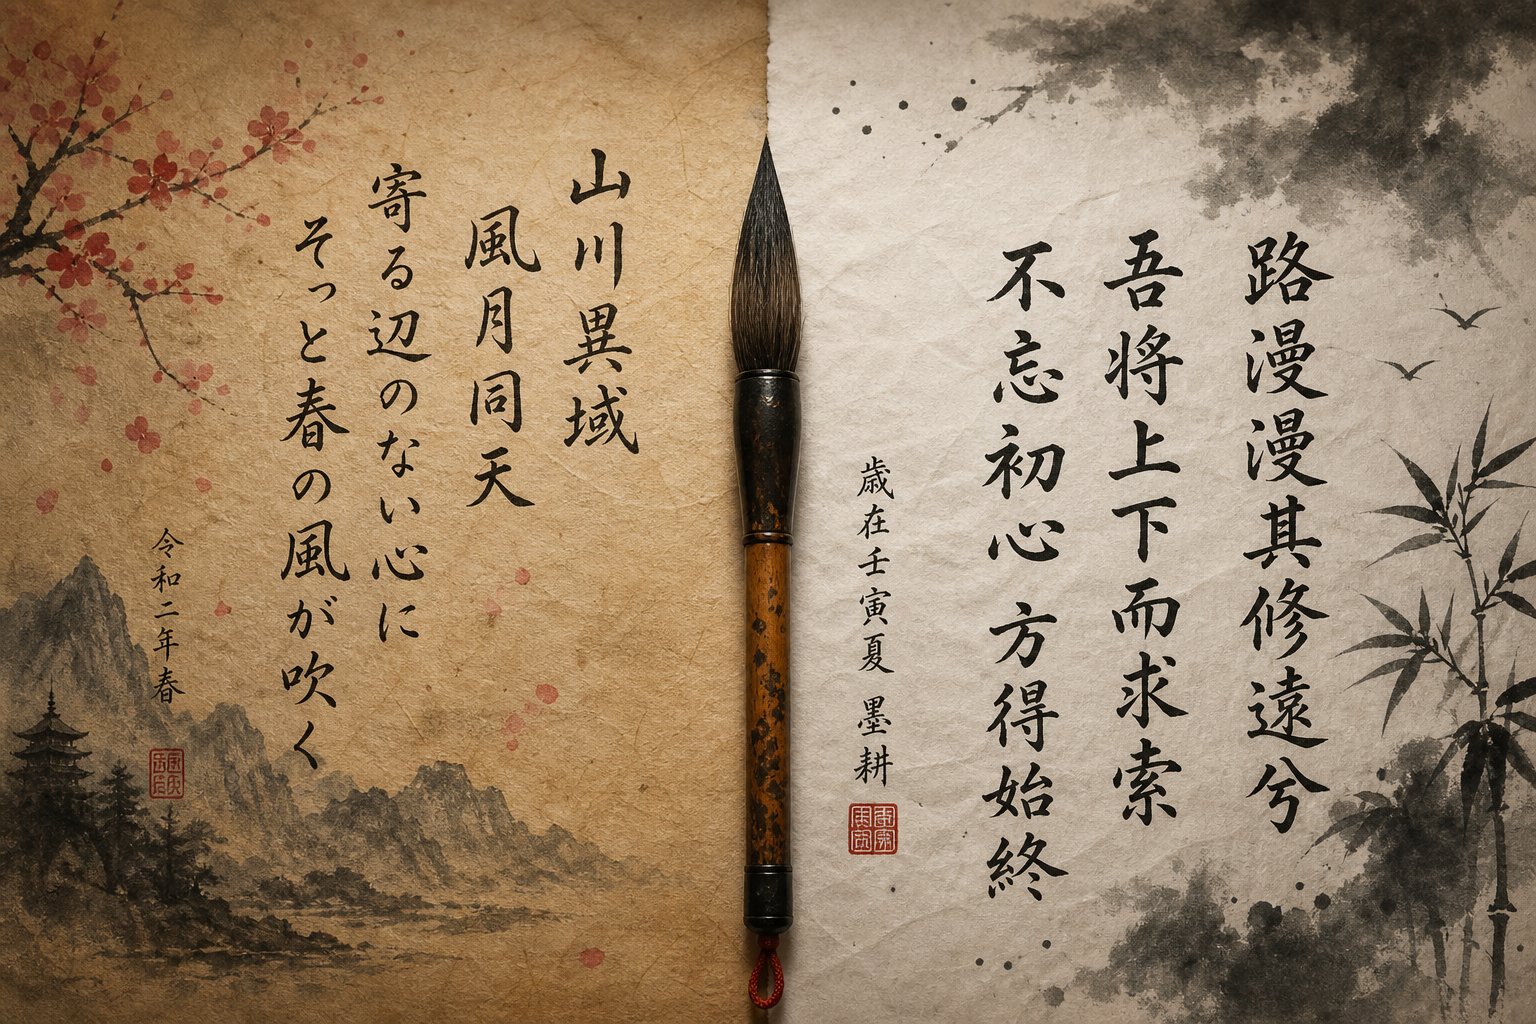 山川異域
風月同天
寄る辺のない心に
そっと春の風が吹く
令和二年春
路漫漫其修遠兮
吾将上下而求索
不忘初心 方得始終
歳在壬寅夏 墨耕